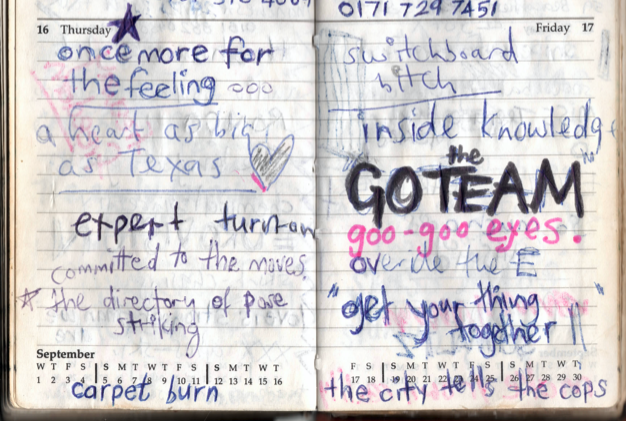 16 Thursday
once more for
the feeling ...
a heart as big
as Texas
expert turn on
committed to the moves.
* the directory of pose
striking
September
W T F S S M T W T F S S M T W T
1 2 3 4 5 6 7 8 9 10 11 12 13 14 15 16
carpet burn
0171 729 7451
Friday 17
switchboard
bitch
inside knowledge
the
GO TEAM
goo-goo eyes.
the E
"get your thing
together"
F S S M T W T F S S M T W T
17 18 19 20 21 22 23 24 25 26 27 28 29 30
the city tells the cops